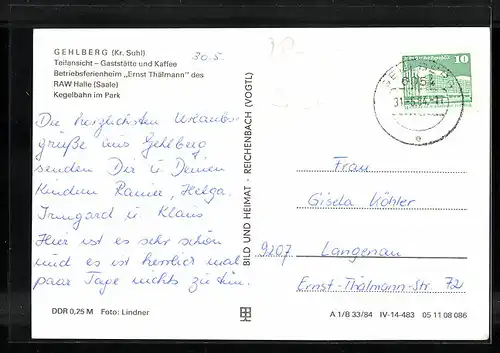 GEHLBERG (Kr. Suhl)
Teilansicht – Gaststätte und Kaffee
Betriebsferienheim „Ernst Thälmann" des
RAW Halle (Saale)
Kegelbahn im Park
30.5.
Die herzlichsten Urlaubs-
grüße aus Gehlberg
senden Dir u Deinen
Kindern Rainer, Helga
Irmgard u Klaus
Hier ist es sehr schön
und es ist herrlich mal
paar Tage nichts zu tun.
DDR 0,25 M Foto: Lindner
BILD UND HEIMAT · REICHENBACH (VOGTL)
10
6054
Frau
Gisela Köhler
9207 Langenau
Ernst-Thälmann-Str 72
A 1/B 33/84 IV-14-483 05 11 08 086